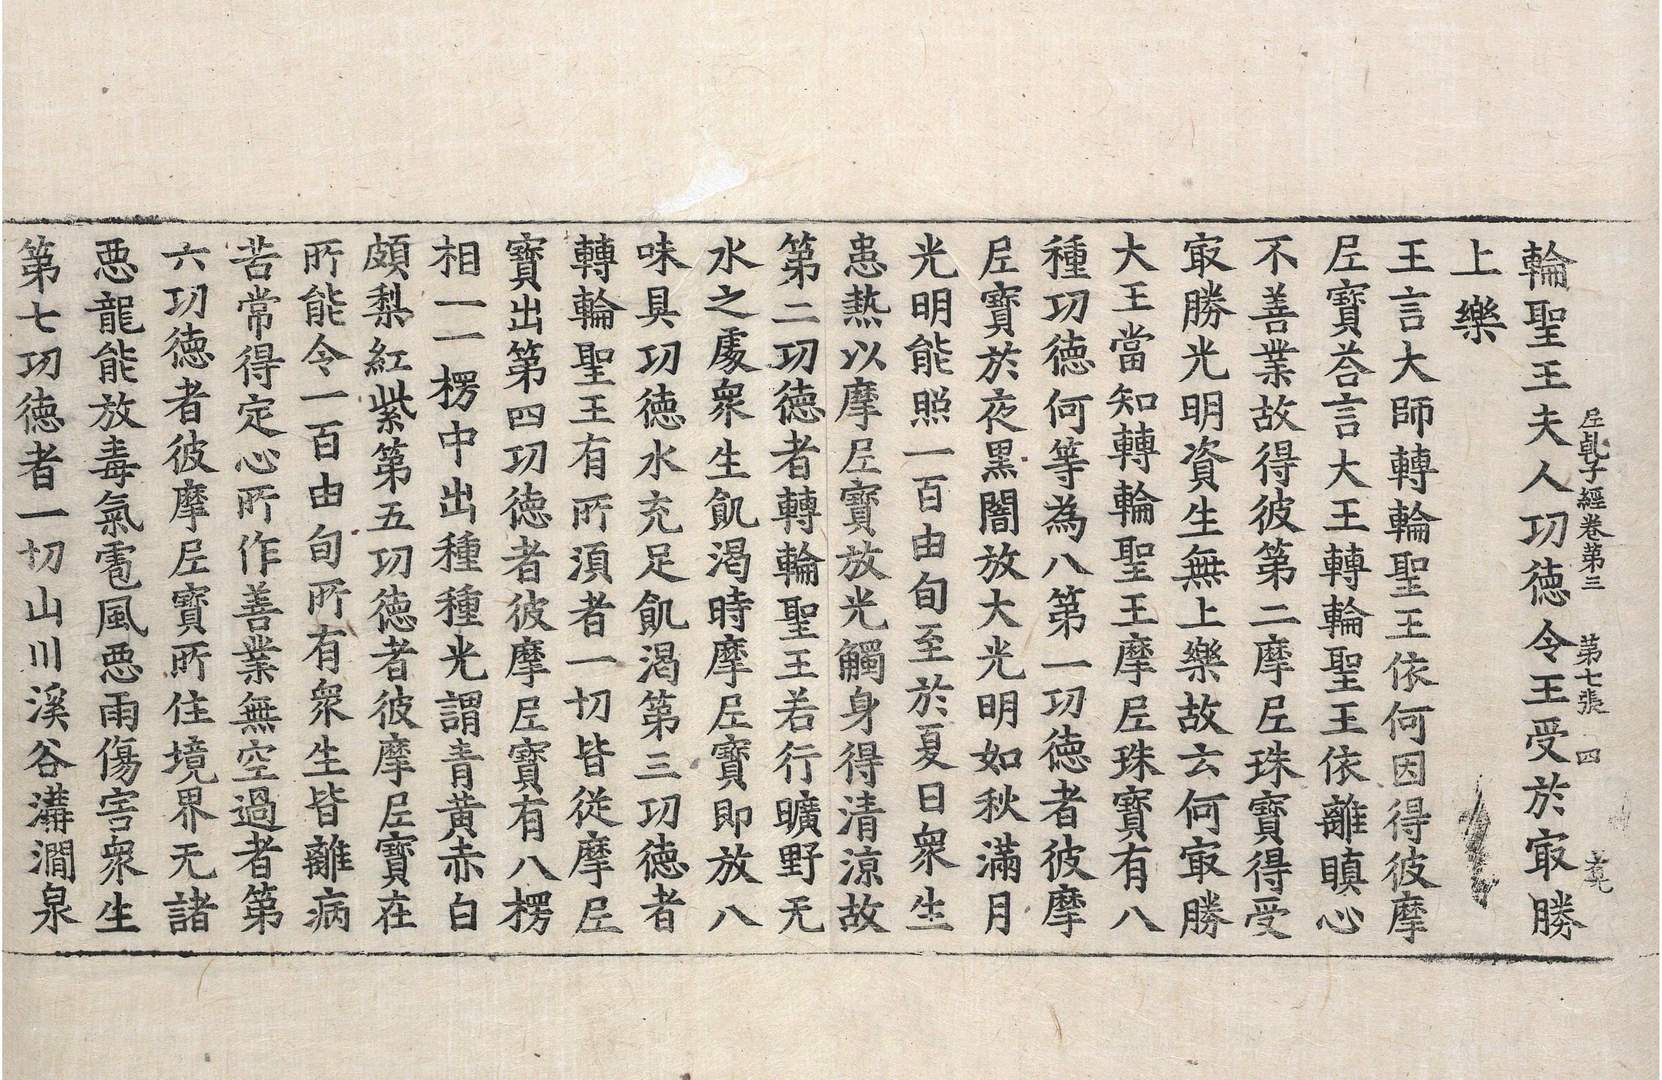 輪聖王夫人功德令王受於㝡勝
上樂
王言大師轉輪聖王依何因得彼摩
𡰱寶荅言大王轉輪聖王依離瞋心
不善業故得彼第二摩𡰱珠寶得受
㝡勝光明資生無上樂故云何㝡勝
大王當知轉輪聖王摩𡰱珠寶有八
種功德何等為八第一功德者彼摩
𡰱寶於夜黑闇放大光明如秋滿月
光明能照一百由旬至於夏日衆生
患熱以摩𡰱寶放光觸身得清涼故
第二功德者轉輪聖王若行曠野无
水之處衆生飢渴時摩𡰱寶即放八
味具功德水充足飢渴第三功德者
轉輪聖王有所須者一切皆從摩𡰱
寶出第四功德者彼摩𡰱寶有八楞
相一一楞中出種種光謂青黃赤白
頗梨紅紫第五功德者彼摩𡰱寶在
所能令一百由旬所有衆生皆離病
苦常得定心所作善業無空過者第
六功德者彼摩𡰱寶所住境界无諸
惡龍能放毒氣雹風惡雨傷害衆生
第七功德者一切山川溪谷溝澗泉
𡰱乹子經卷第三 第七張 四